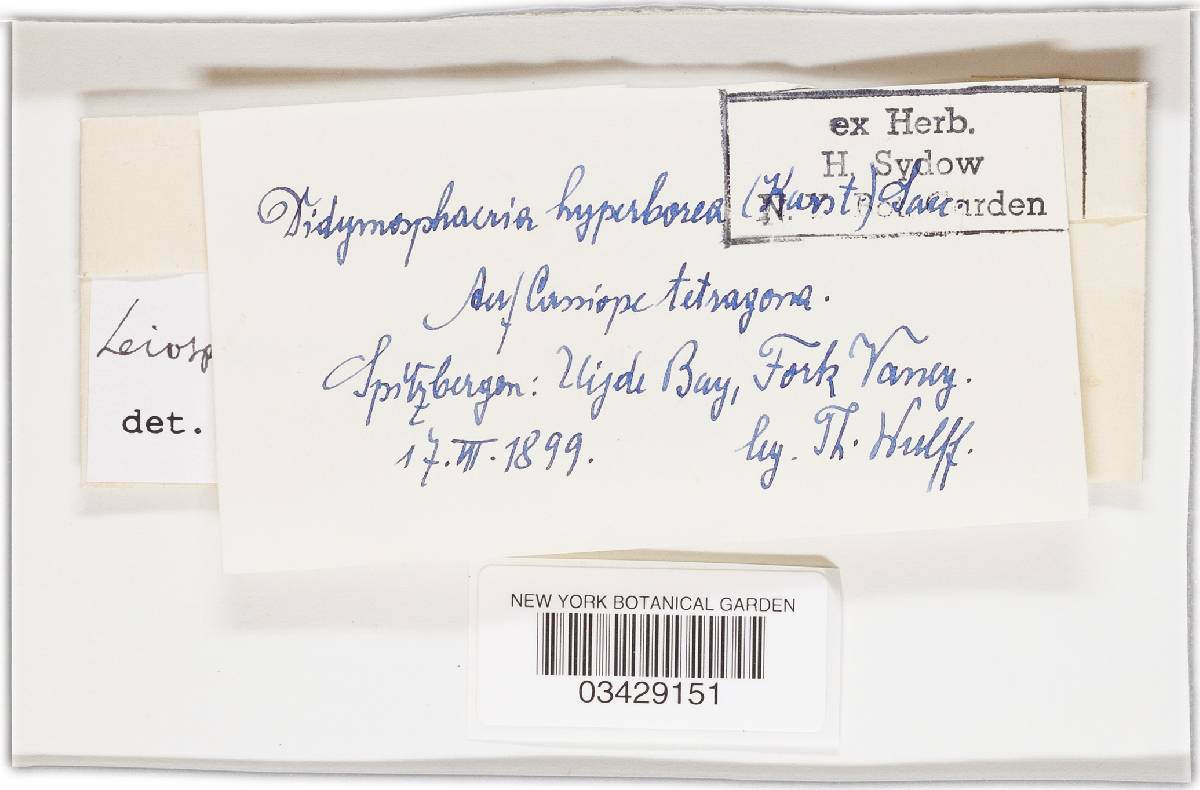 ex Herb.
H. Sydow
N. Y. Bot. Garden
Didymosphaeria hyperborea (Karst) Sacc
Auf Cassiope tetragona.
Spitzbergen: Wijde Bay, Fork Vaney.
17.VII.1899. leg. Th. Wulff.
Leiosp
det.
NEW YORK BOTANICAL GARDEN
03429151